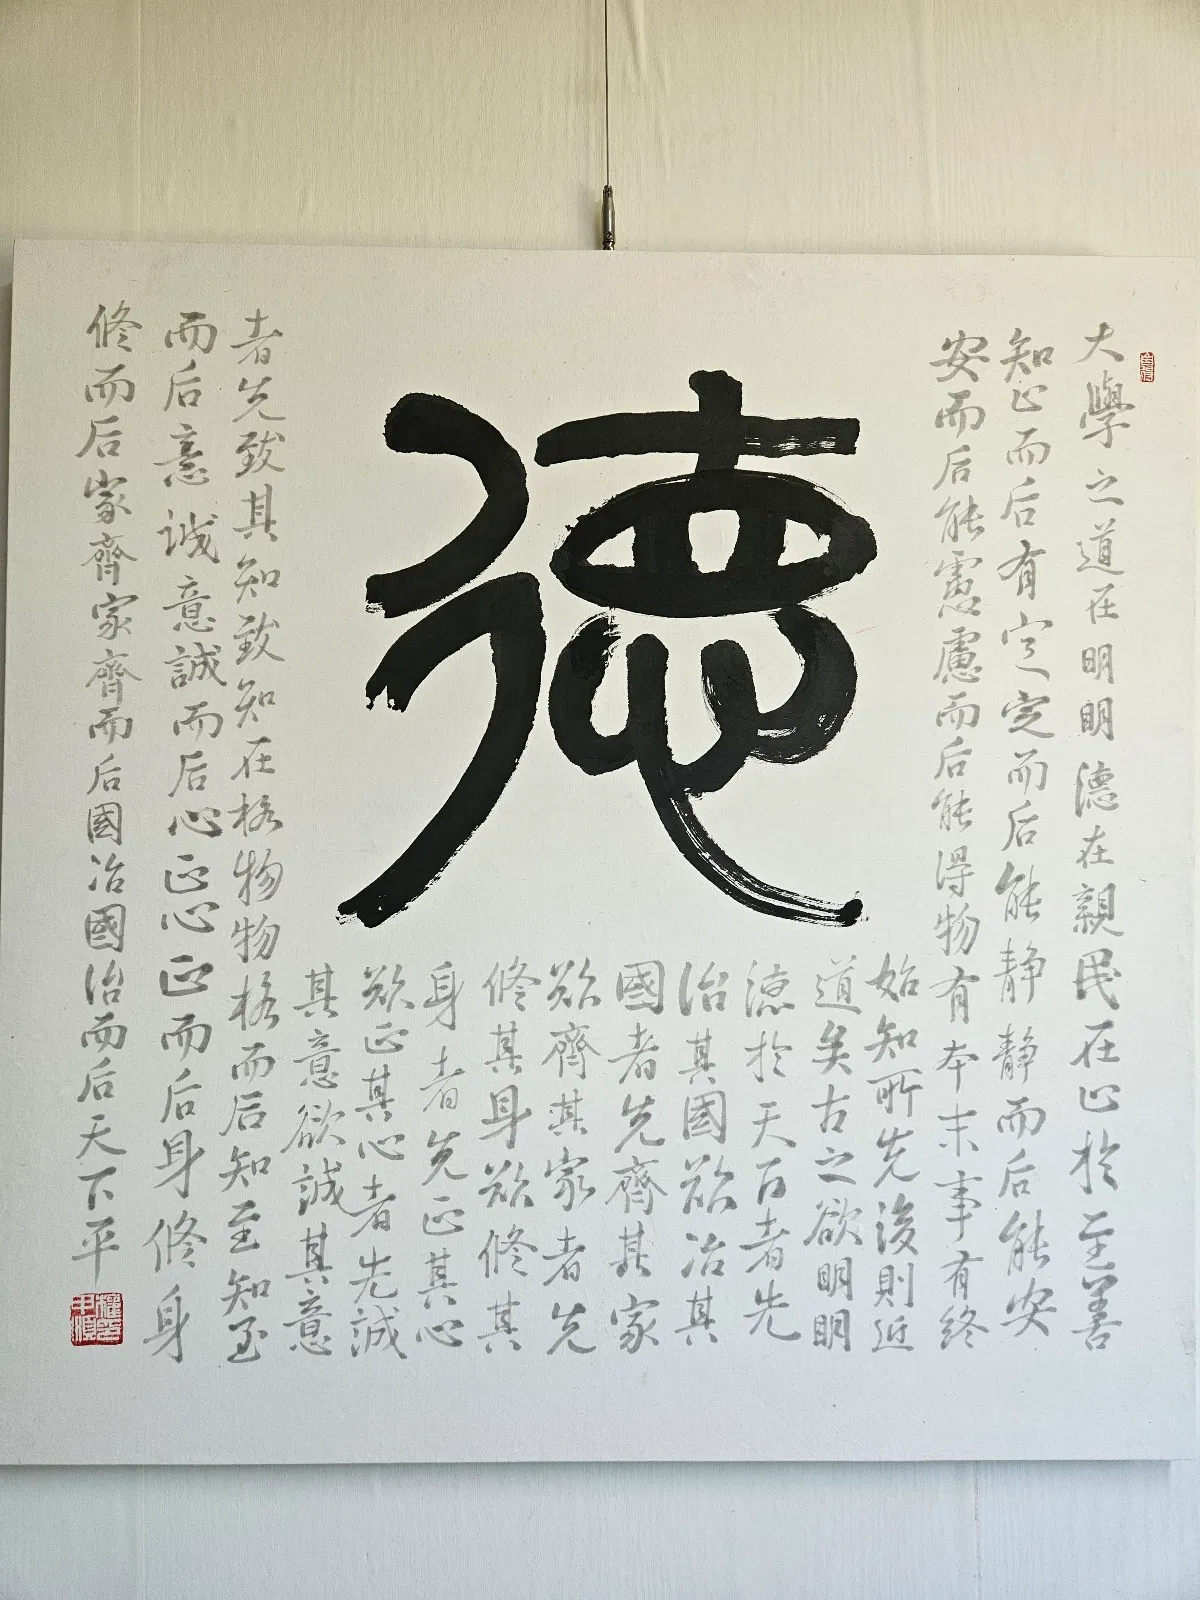 德
大學之道在明明德在親民在止於至善
知止而后有定定而后能靜靜而后能安
安而后能慮慮而后能得物有本末事有終
始知所先後則近
道矣古之欲明明
德於天下者先
治其國欲治其
國者先齊其家
欲齊其家者先
修其身欲修其
身者先正其心
欲正其心者先誠
其意欲誠其意
者先致其知致知在格物物格而后知至知至
而后意誠意誠而后心正心正而后身修身
修而后家齊家齊而后國治國治而后天下平